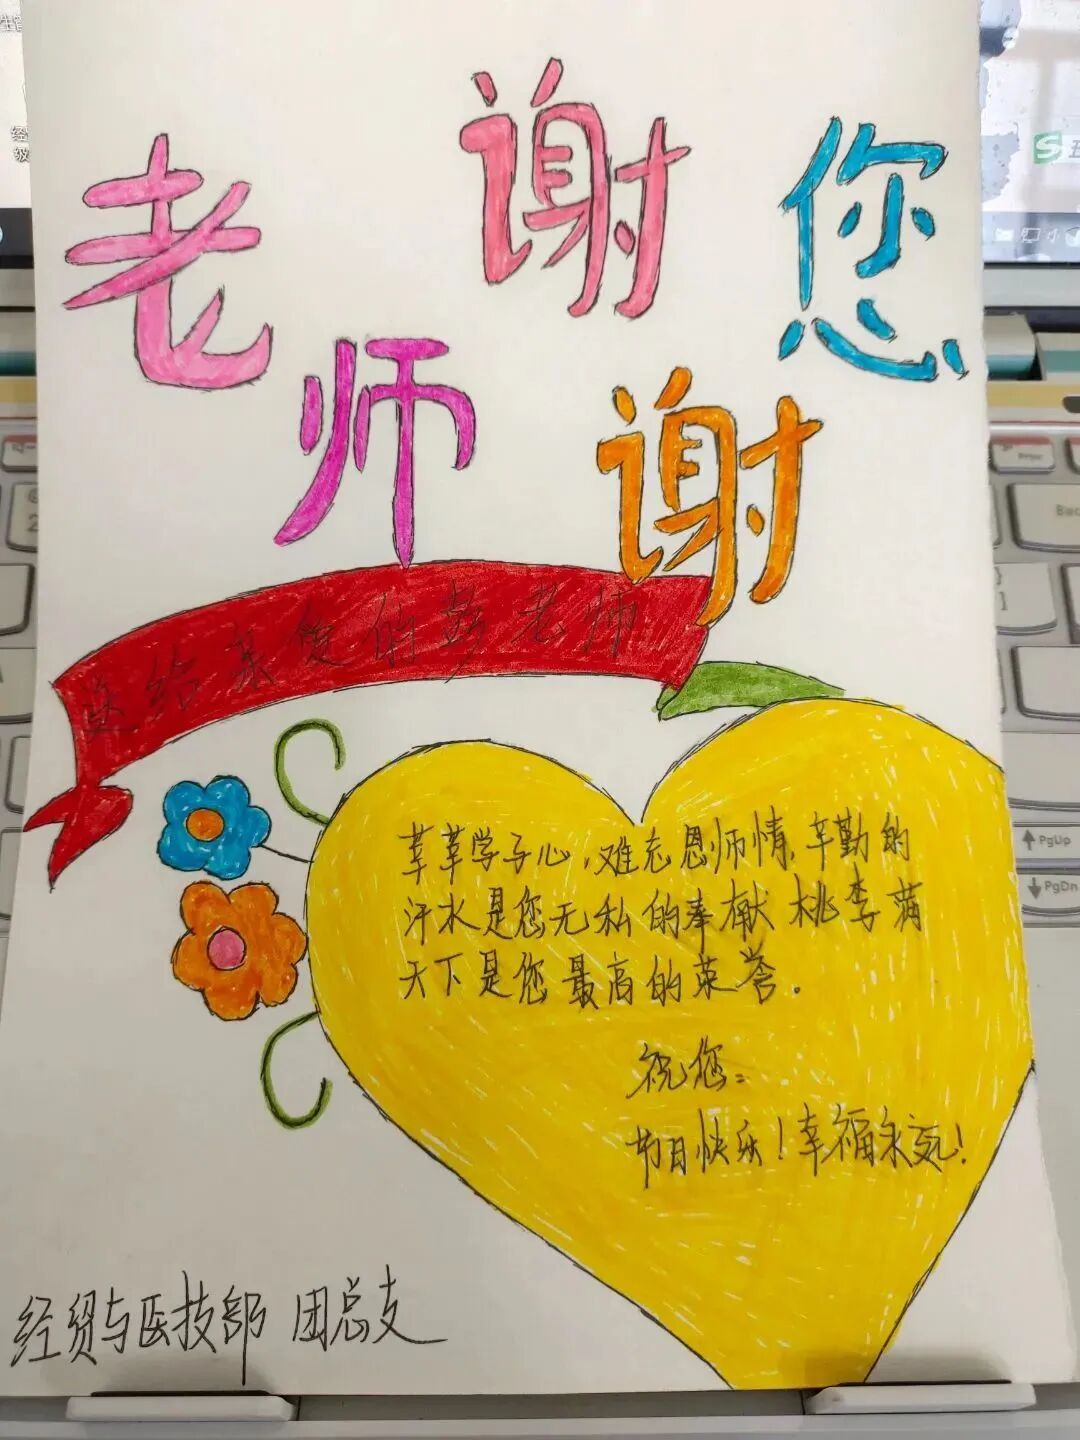 老师谢谢您
送给亲爱的彭老师
莘莘学子心,难忘恩师情,辛勤的
汗水是您无私的奉献桃李满
天下是您最高的荣誉.
祝您:
节日快乐!幸福永远!
经贸与医技部 团总支
PgUp
PgDn